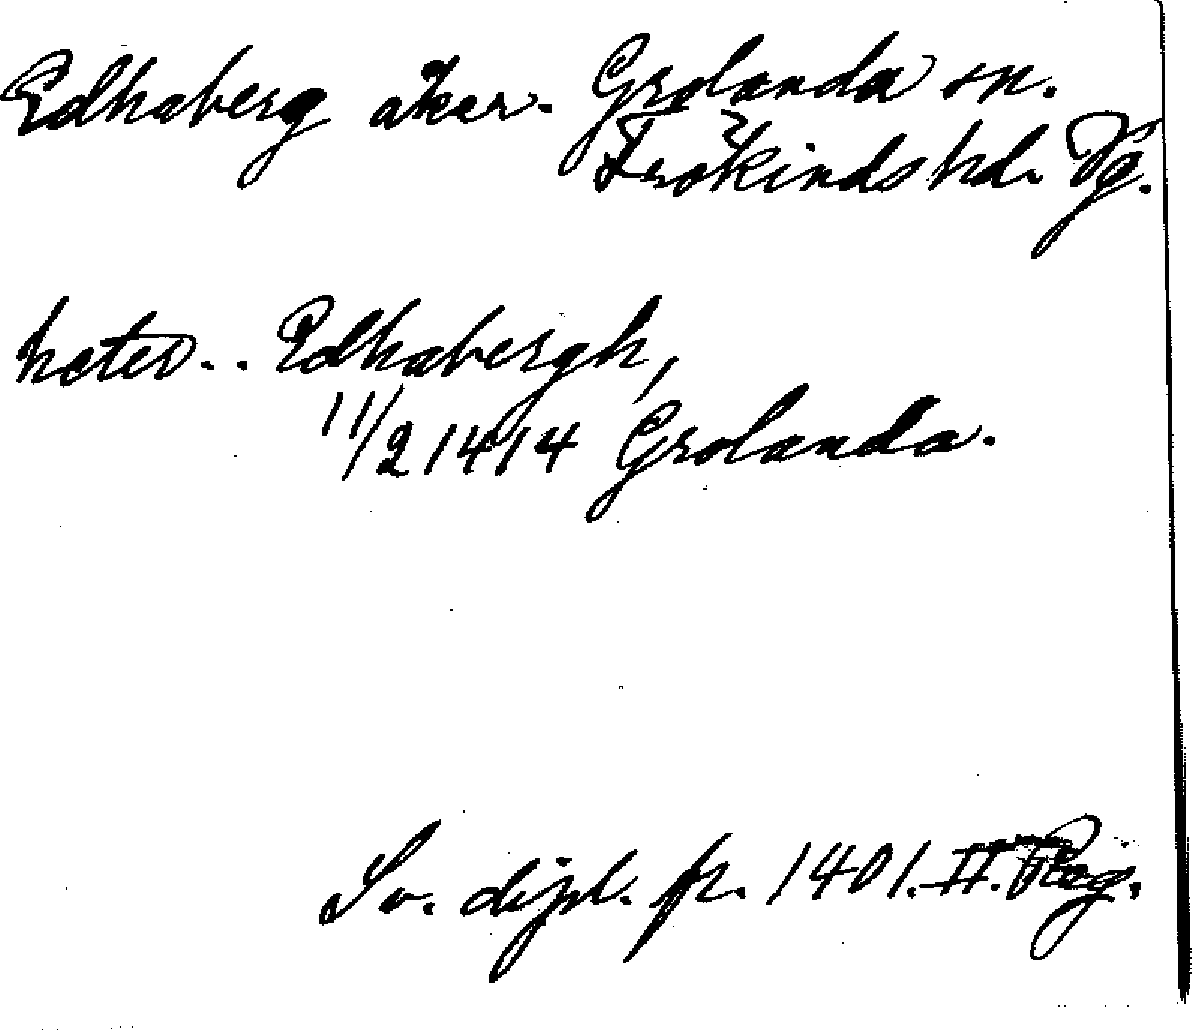 Edhaberg åker. Grolanda sn.
Frökinds hd. Vg.
heter.. Edhabergh,
11/2 1414 Grolanda.
Sv. dipl. fr. 1401. II. Reg.